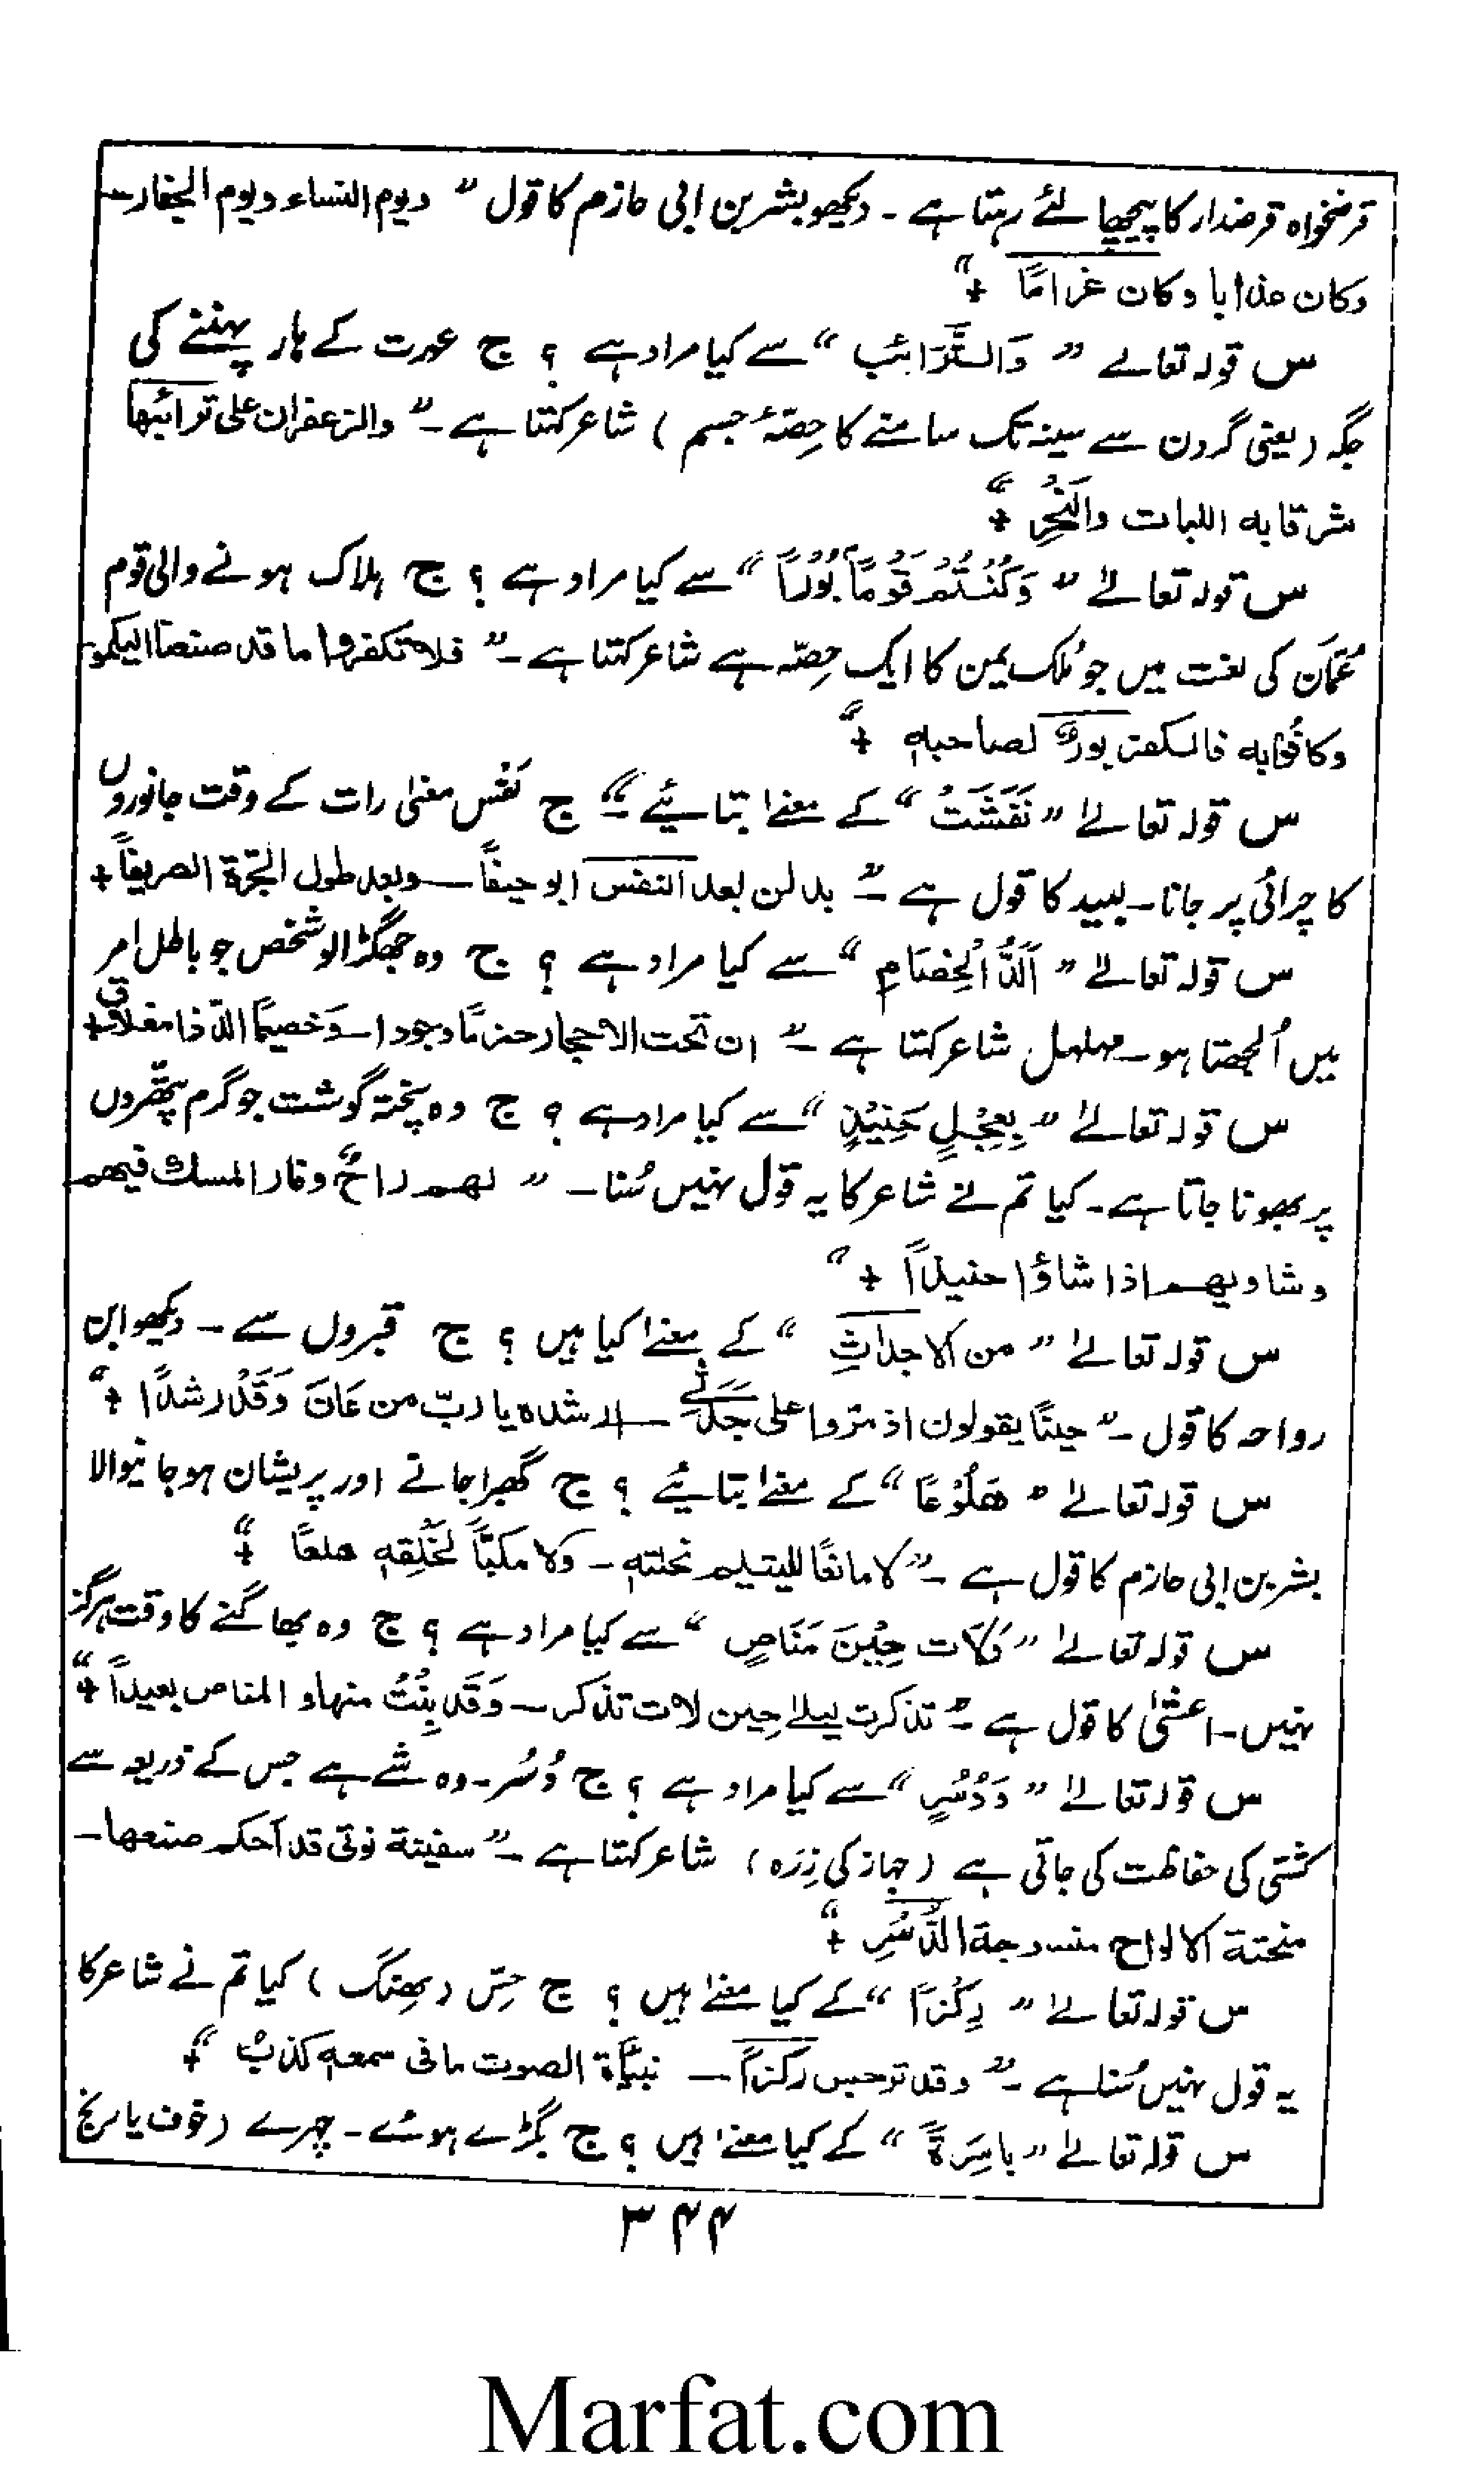 قرضخواہ قرضدار کا پیچھا لئے رہتا ہے ۔ دیکھو بشر بن ابی حازم کا قول ” ویوم النساء ویوم الجفار ــ
وکان عذابا وکان غراماً “ +
س قولہ تعالےٰ ” وَالتَّرَائبِ “ سے کیا مراد ہے ؟ ج عورت کے ہار پہننے کی
جگہ (یعنی گردن سے سینہ تک سامنے کا حِصّۂ جسم ) شاعر کہتا ہے ۔ ” والزعفران علی ترائبھا
شرقا بہ اللبات والنَحُرِ “ +
س قولہ تعالےٰ ” وَکُنْتُمْ قَوْمًا بُوْرًا “ سے کیا مراد ہے ؟ ج ہلاک ہونے والی قوم
عُمّان کی لغت میں جو مُلک یمن کا ایک حِصّہ ہے شاعر کہتا ہے ۔ ” فلا تکفروا ما قد صنعنا الیکمو
وکافوا بہ فالکفر بورٌ لصاحبہٖ “ +
س قولہ تعالےٰ ” نَفَشَتْ “ کے معنےٰ بتائیے ؟ ج نَفْس معنیٰ رات کے وقت جانوروں
کا چرائی پر جانا ۔ لبید کا قول ہے ۔ ” بدلن بعد النفس الوجیفاً ــ وبعد طول الجرّۃ الصریفاً “ +
س قولہ تعالےٰ ” اَلَدُّ الْخِصَامِ “ سے کیا مراد ہے ؟ ج وہ جھگڑالو شخص جو باطل امر
میں اُلجھتا ہو ۔ مہلہل شاعر کہتا ہے ۔ ” ان تحت الاحجار حزمًا وجودا ــ وَخصیمًا الدّ ذا مغلاق +
س قولہ تعالےٰ ” بِعِجْلٍ حَنِیْذٍ “ سے کیا مراد ہے ؟ ج وہ پختہ گوشت جو گرم پتھّروں
پر بھونا جاتا ہے ۔ کیا تم نے شاعر کا یہ قول نہیں سُنا ۔ ” لھم راحٌ وفار المسک فیھم
وشاویھم اذا شاؤا حنیذاً + “
س قولہ تعالےٰ ” من الاجداثِ “ کے معنےٰ کیا ہیں ؟ ج قبروں سے ۔ دیکھو ابن
رواحہ کا قول ۔ ” حینًا یقولون اذ مرّوا علی جَدَثی ــ ارشدہ یا ربّ من عَانَ وَقَدْ رشدًا “ +
س قولہ تعالےٰ ” ھَلُوْعًا “ کے معنےٰ بتائیے ؟ ج گھبرا جانے اور پریشان ہو جانیوالا
بشر بن ابی حازم کا قول ہے ۔ ” لا مانعًا للیتیم نحلتہٖ ۔ ولا مکبّاً لِخَلقِہٖ ھلعًا “ +
س قولہ تعالےٰ ” وَلَات حِیْنَ مَنَاصٍ “ سے کیا مراد ہے ؟ ج وہ بھاگنے کا وقت ہرگز
نہیں ۔ اعشیٰ کا قول ہے ۔ ” تذکرت لیلےٰ حِین لات تذکر ــ وَقَد بِنْتُ منھا و المناص بعیداً “ +
س قولہ تعالےٰ ” وَدُسُرٍ “ سے کیا مراد ہے ؟ ج دُسُر ۔ وہ شے ہے جس کے ذریعہ سے
کشتی کی حفاظت کی جاتی ہے ( جہاز کی زِرَہ ) شاعر کہتا ہے ۔ ” سفینۃ نوتی قد اَحکم صنعھا ــ
منحتۃ الالواح منسوجۃ الدُّسُرِ “ +
س قولہ تعالےٰ ” رِکْزًا “ کے کیا معنےٰ ہیں ؟ ج حِسّ (بھِنک) کیا تم نے شاعر کا
یہ قول نہیں سُنا ہے ۔ ” وقد توجس رکزاً ــ نبّأۃ الصوت ما فی سمعہٖ کذبٌ “ +
س قولہ تعالےٰ ” بَاسِرَۃً “ کے کیا معنےٰ ہیں ؟ ج بگڑے ہوئے ۔ چہرے (خوف یا رنج
۳۴۴
Marfat.com